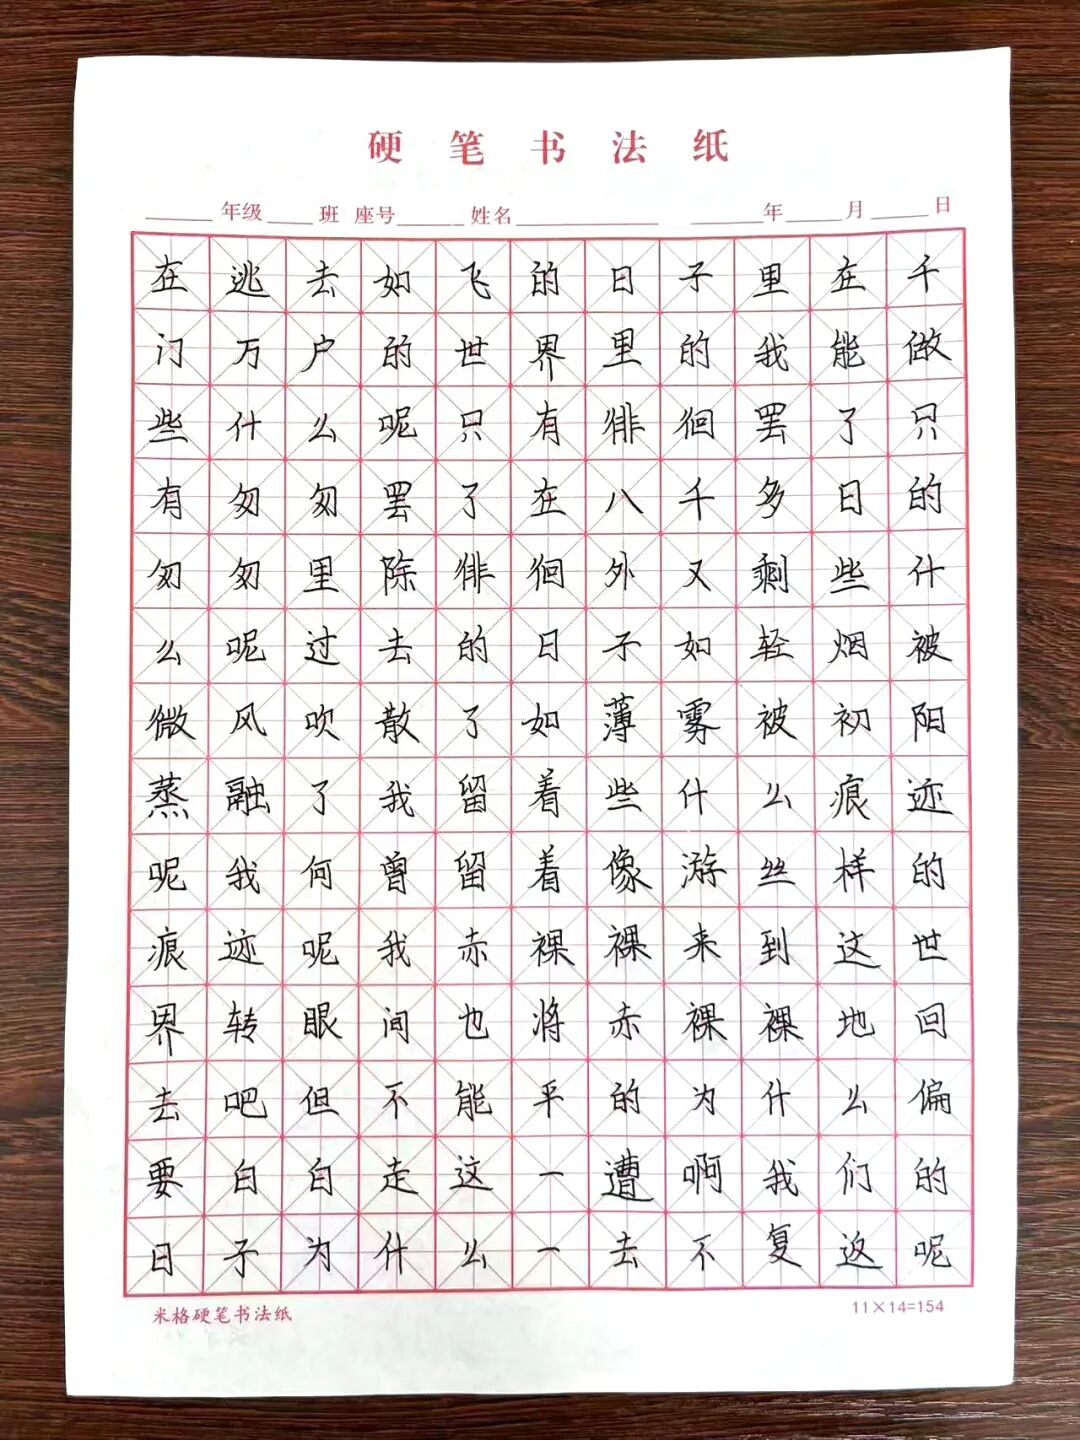 硬笔书法纸
年级 班 座号 姓名 年 月 日
在逃去如飞的日子里在千
门万户的世界里的我能做
些什么呢只有徘徊罢了只
有匆匆罢了在八千多日的
匆匆里除徘徊外又剩些什
么呢过去的日子如轻烟被
微风吹散了如薄雾被初阳
蒸融了我留着些什么痕迹
呢我何曾留着像游丝样的
痕迹呢我赤裸裸来到这世
界转眼间也将赤裸裸地回
去吧但不能平的为什么偏
要白白走这一遭啊我们的
日子为什么一去不复返呢
米格硬笔书法纸 11×14=154